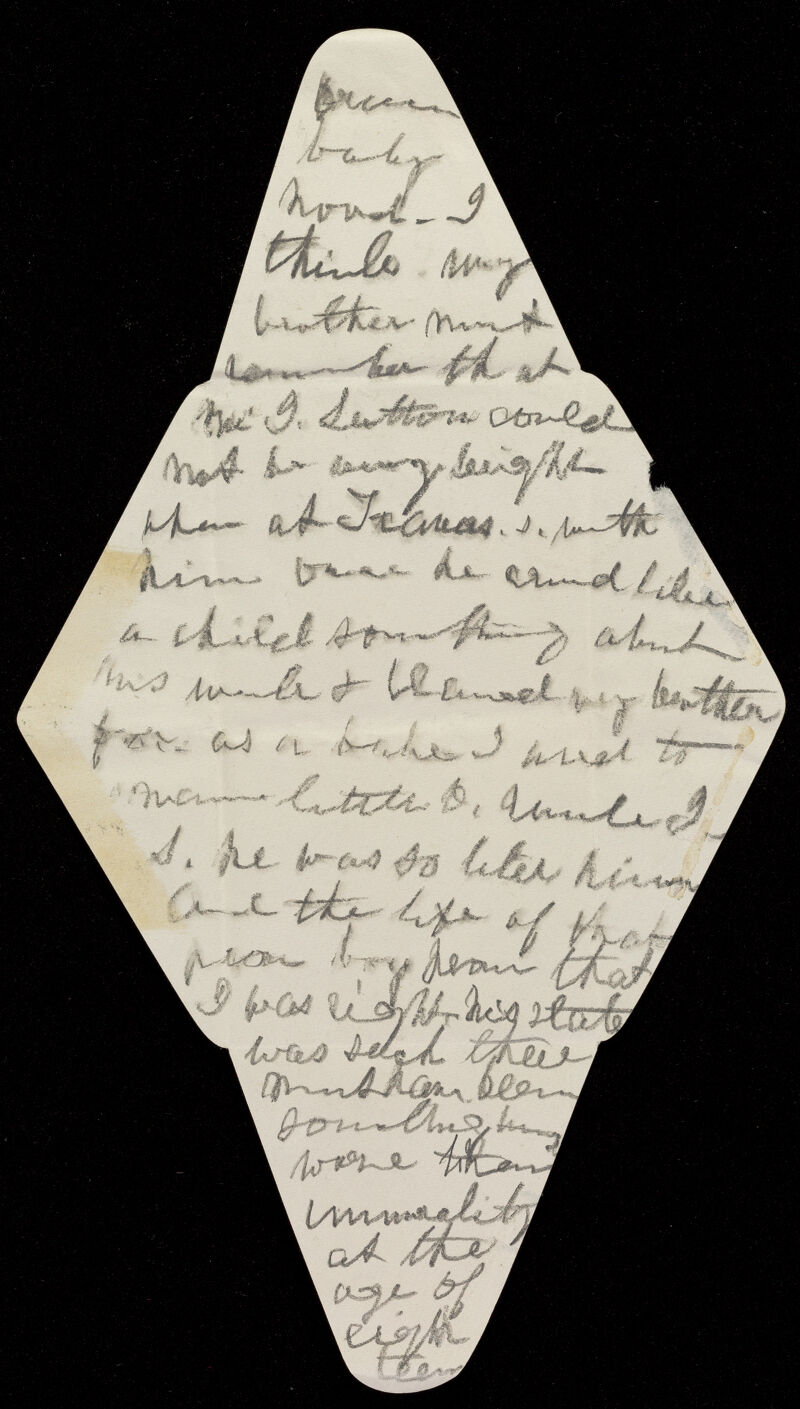 baby
I
think my
brother must
remember that
Mr I. Sutton could
not be very bright
when at Texas. s. with
him once he cried like
a child something about
his uncle & blamed my brother
for. as a babe I used to
name little D. Uncle I.
S. he was so like him
and the life of that
poor boy that
I was right his state
was such there
must have been
something
worse than
immorality
at the
age of
eigh
teen